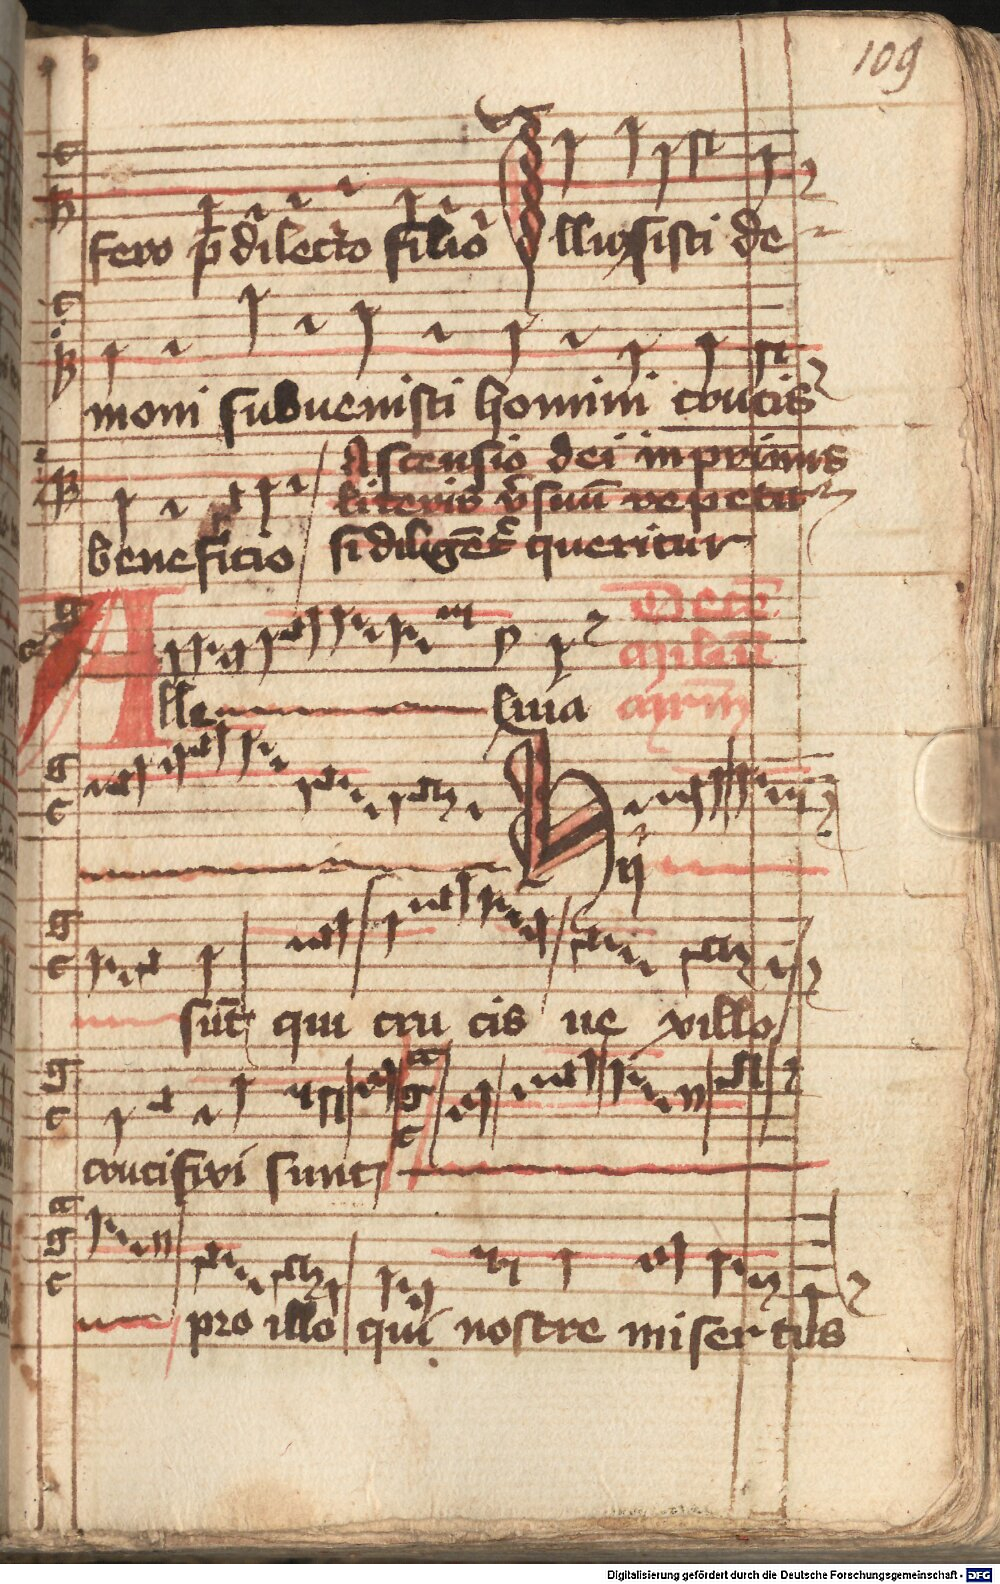 109
fero p dilecto filio Illusisti de
moni subuenisti homini crucis
Ascensio dei in primis
literis
beneficio si diligēt queritur
Alle luia
Hii
sūt qui cru cis ve xillo
crucifixi sunt
pro illo qui nostre misertus
Digitalisierung gefördert durch die Deutsche Forschungsgemeinschaft - DFG